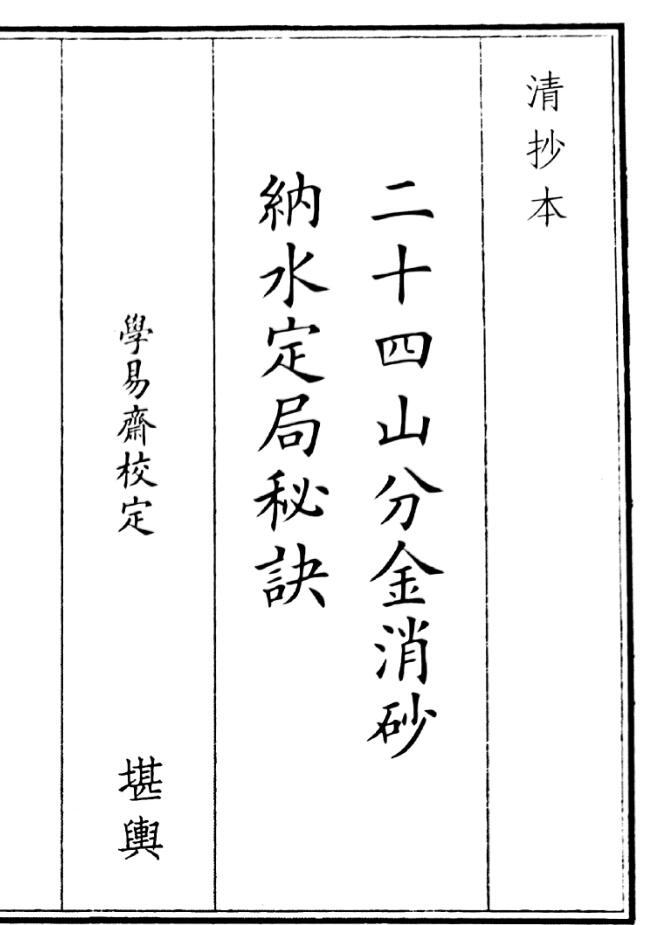 清抄本
二十四山分金消砂
納水定局秘訣
學易齋校定
堪輿